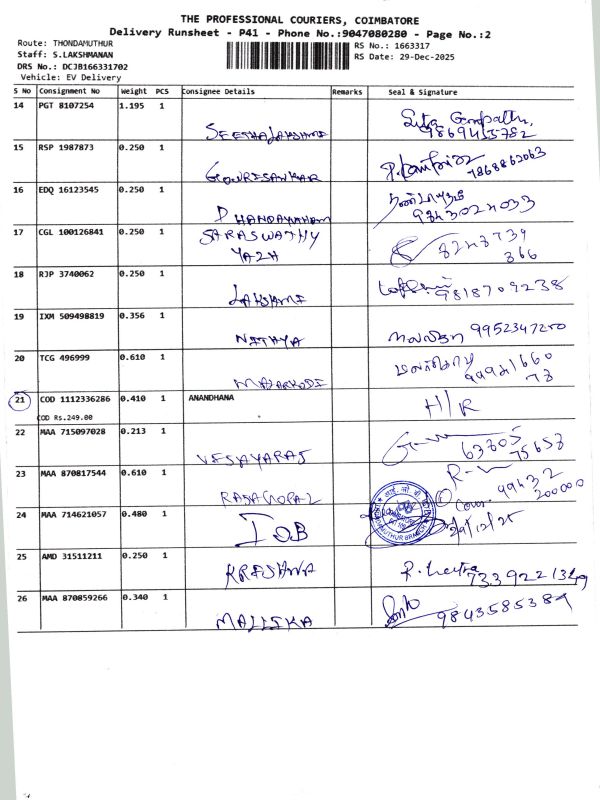 THE PROFESSIONAL COURIERS, COIMBATORE
Delivery Runsheet - P41 - Phone No.:9047080280 - Page No.:2
Route: THONDAMUTHUR
RS No.: 1663317
Staff: S.LAKSHMANAN
RS Date: 29-Dec-2025
DRS No.: DCJB166331702
Vehicle: EV Delivery
S No Consignment No Weight PCS Consignee Details Remarks Seal & Signature
14 PGT 8107254 1.195 1
SEETHALAKSHMI 9869455782
15 RSP 1987873 0.250 1
GOWRISANKAR 7868862063
16 EDQ 16123545 0.250 1
DHANDAYUTHAM 9843024033
17 CGL 100126841 0.250 1 SARASWATHY
YAZH 366
18 RJP 3740062 0.250 1
LAKSHMI 9818709238
19 IXM 509498819 0.356 1
NITHYA 9952347250
20 TCG 496999 0.610 1
MALARKODI
21 COD 1112336286 0.410 1 ANANDHANA H/R
COD Rs.249.00
22 MAA 715097028 0.213 1
VIJAYARAJ 63805 75657
23 MAA 870817544 0.610 1
RAJAGOPAL 99432 200000
24 MAA 714621057 0.480 1
IOB 29/12/25
25 AMD 31511211 0.250 1
KRISHNA
26 MAA 870859266 0.340 1
MALLIKA 9843585389